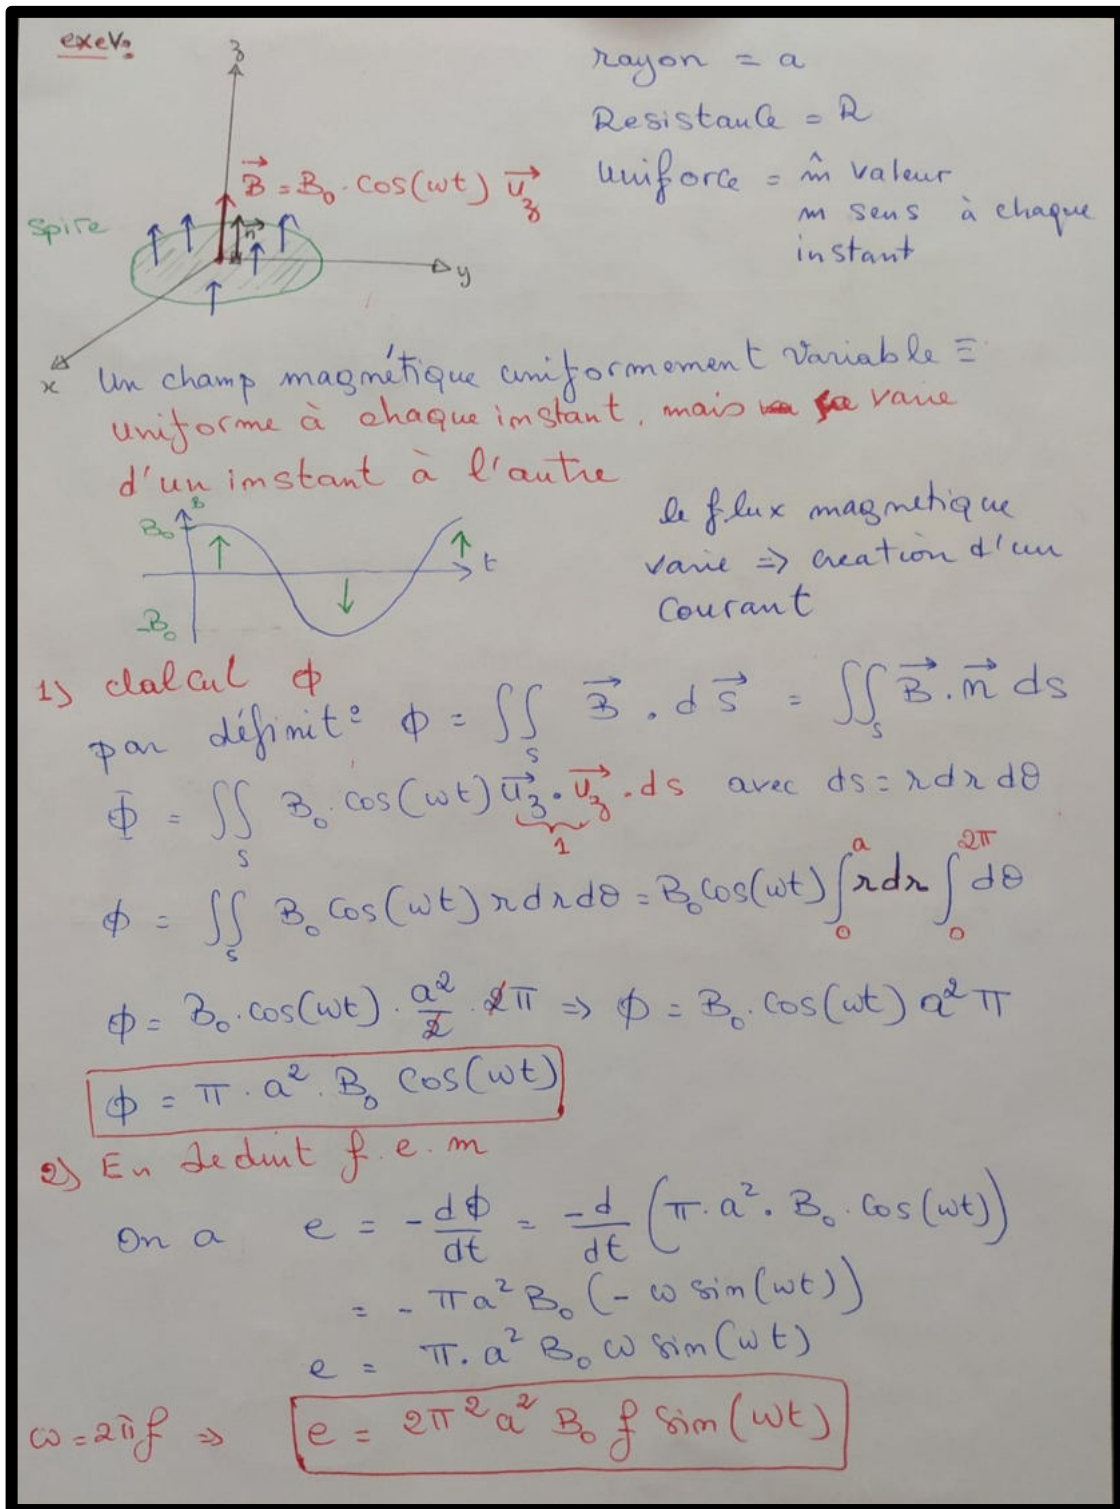 exeV:
z
rayon = a
Resistance = R
B⃗ = B₀ . cos(wt) u⃗z
Uniforce = m̂ valeur
m sens à chaque
instant
Spire
n⃗
y
x
Un champ magnétique uniformement variable Ξ
uniforme à chaque instant, mais varie
d'un instant à l'autre
B
B₀
t
-B₀
le flux magnetique
varie => creation d'un
Courant
1) clalcul ϕ
par définit° ϕ = ∬s B⃗ . dS⃗ = ∬s B⃗ . n⃗ ds
Φ = ∬s B₀ . cos(wt) u⃗z . u⃗z . ds avec ds = rdrdθ
1
ϕ = ∬s B₀ cos(wt) rdrdθ = B₀ cos(wt) ∫₀ᵃ rdr ∫₀²π dθ
ϕ = B₀ . cos(wt) . a²/2 . 2π => ϕ = B₀ . cos(wt) a² π
ϕ = π . a² . B₀ cos(wt)
2) En deduit f.e.m
On a e = -dϕ/dt = -d/dt (π . a² . B₀ . cos(wt))
= - πa² B₀ (- w sin(wt))
e = π . a² B₀ w sin(wt)
w = 2πf => e = 2π² a² B₀ f sin(wt)